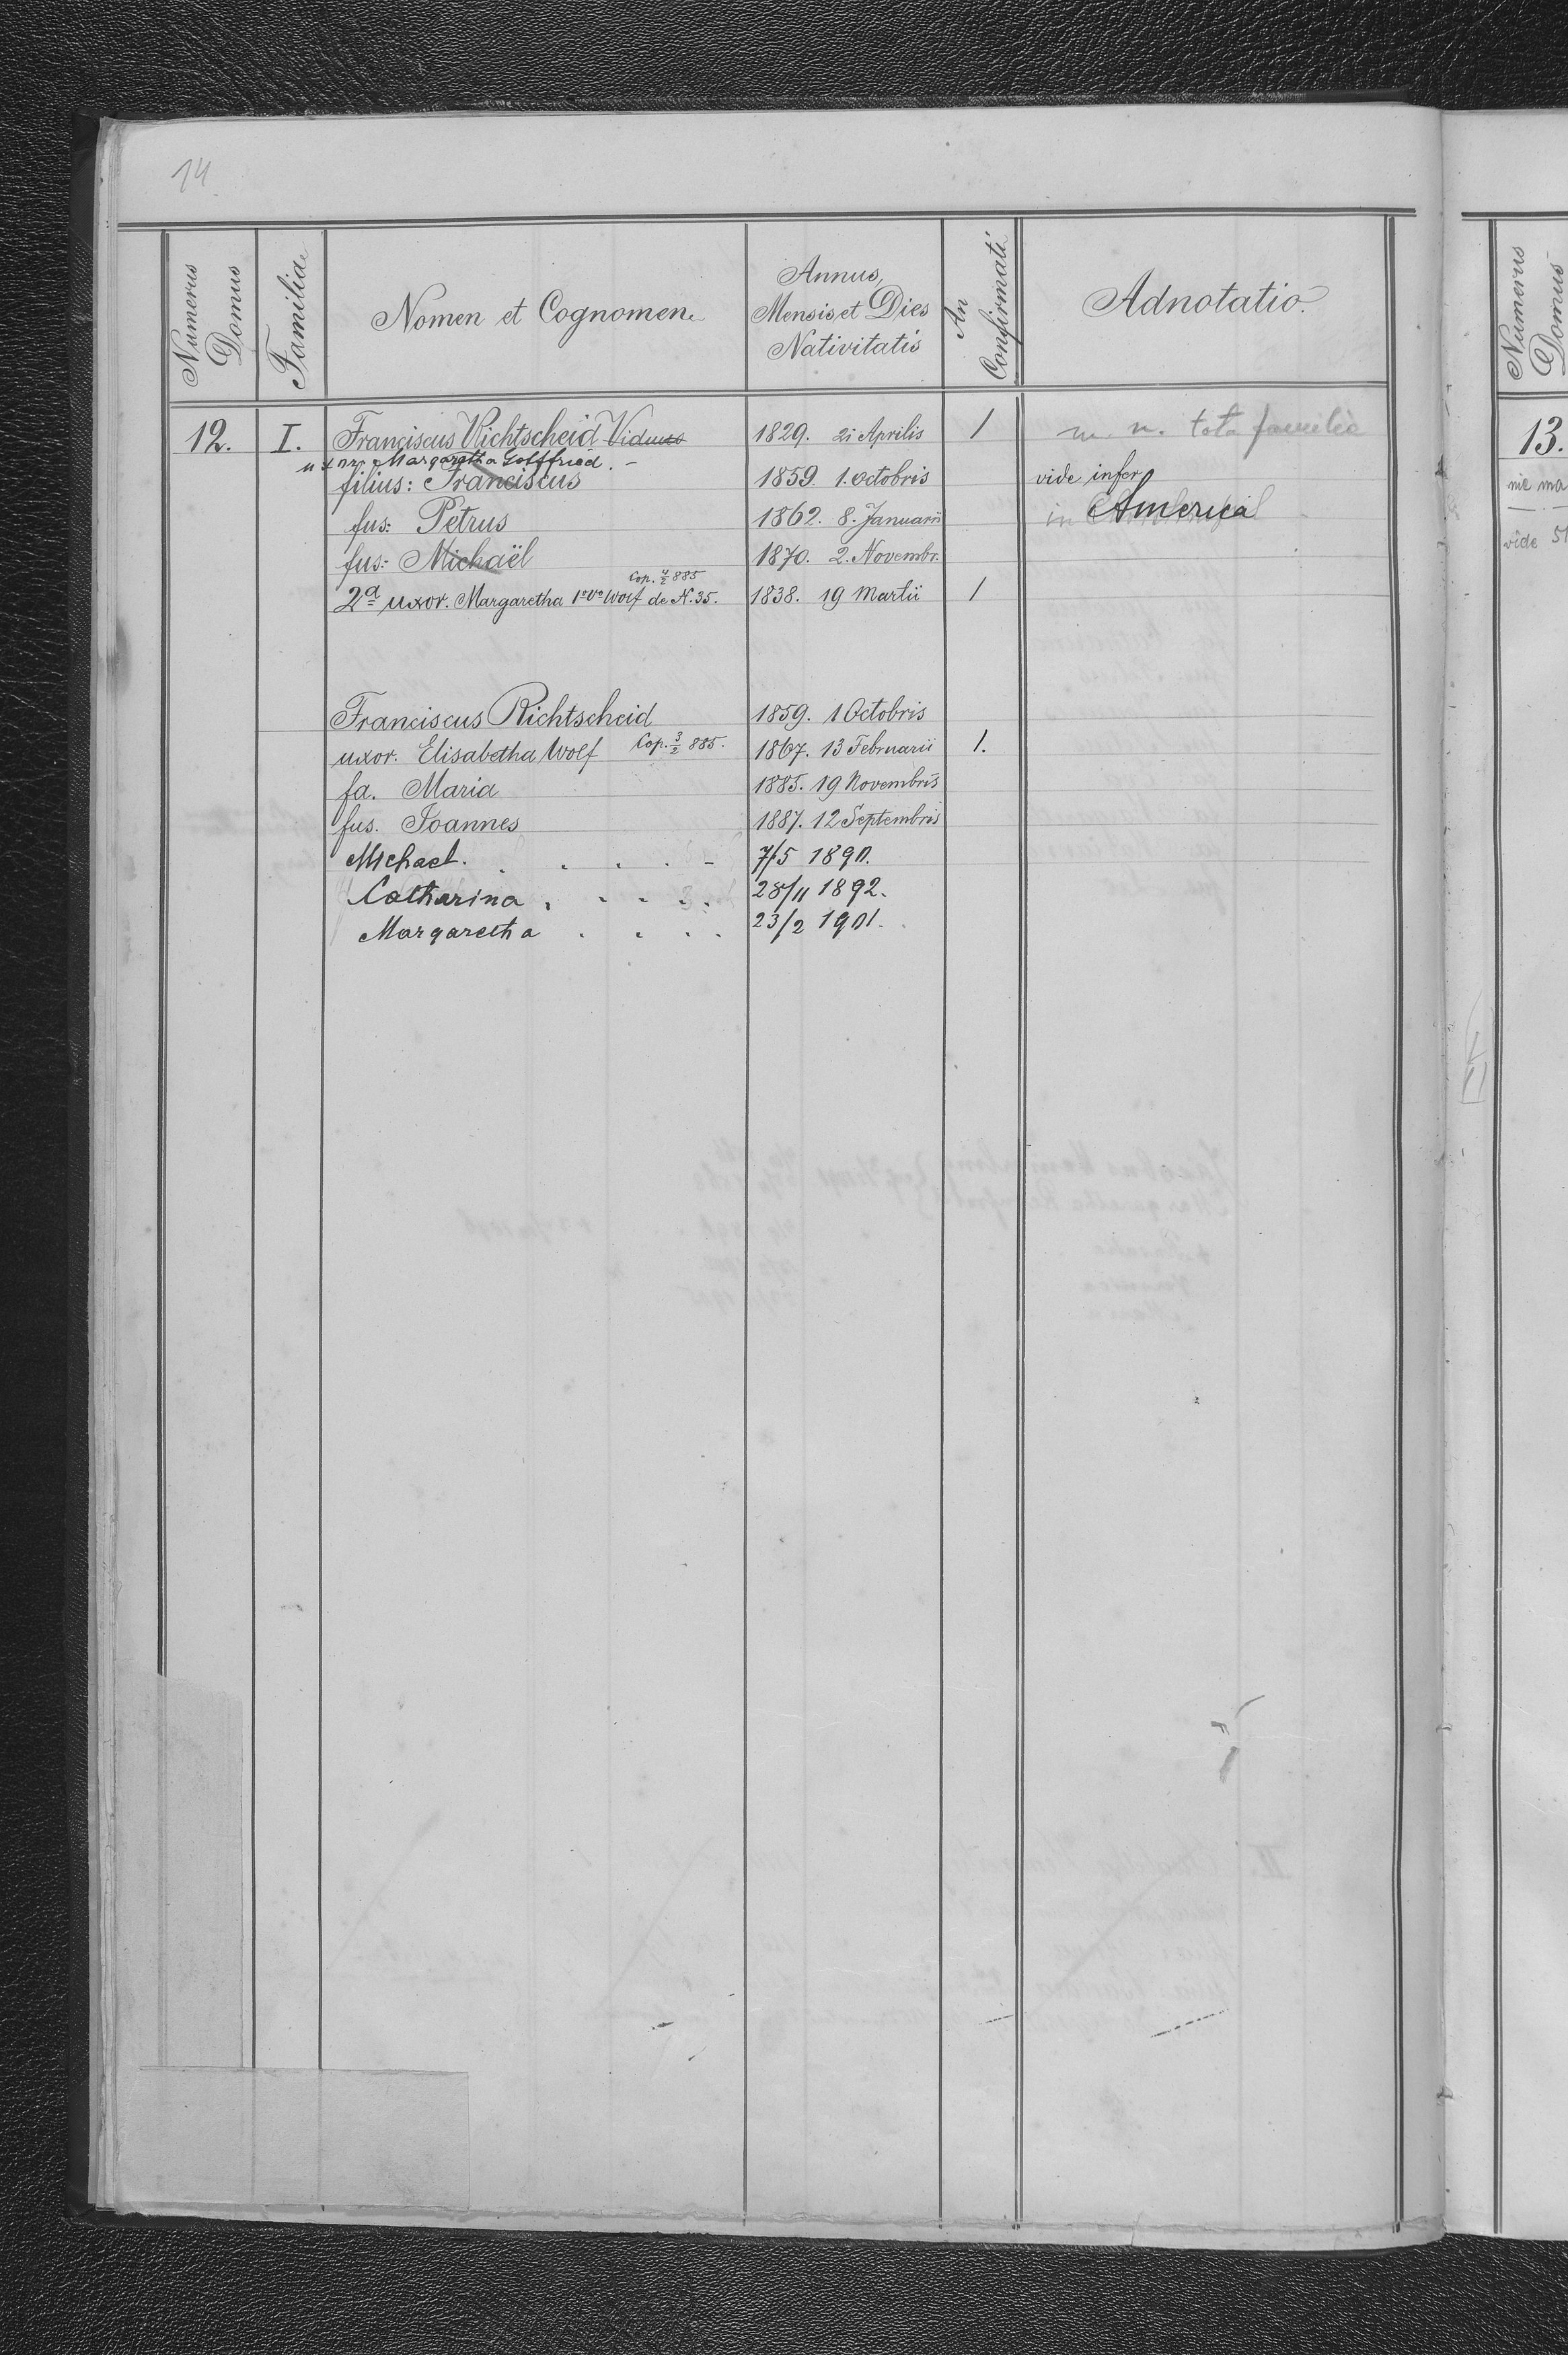 14
Numerus Domus | Familia | Nomen et Cognomen | Annus, Mensis, et Dies Nativitatis | An Confirmati | Adnotatio.
12. | I. | Franciscus Richtscheid Viduus | 1829. 21 Aprilis | 1 | tota familia
Margaretha Gottfried. -
filius: Franciscus | 1859. 1. Octobris | vide infer
fus: Petrus | 1862. 8. Januarii | in America
fus: Michaël | 1870. 2. Novembr.
Cop. 4/2 885
2a uxor. Margaretha Wolf de N. 35. | 1838. 19 Martii | 1
Franciscus Richtscheid | 1859. 1 Octobris
uxor. Elisabetha Wolf Cop. 3/2 885. | 1867. 13 Februarii | 1.
fa. Maria | 1885. 19 Novembris
fus. Joannes | 1887. 12 Septembris
Michael. . . . . - | 7/5 1890.
Catharina . . . . . | 28/11 1892.
Margaretha . . . . | 23/2 1901.
Numerus Domus
13.
nie ma
vide 51